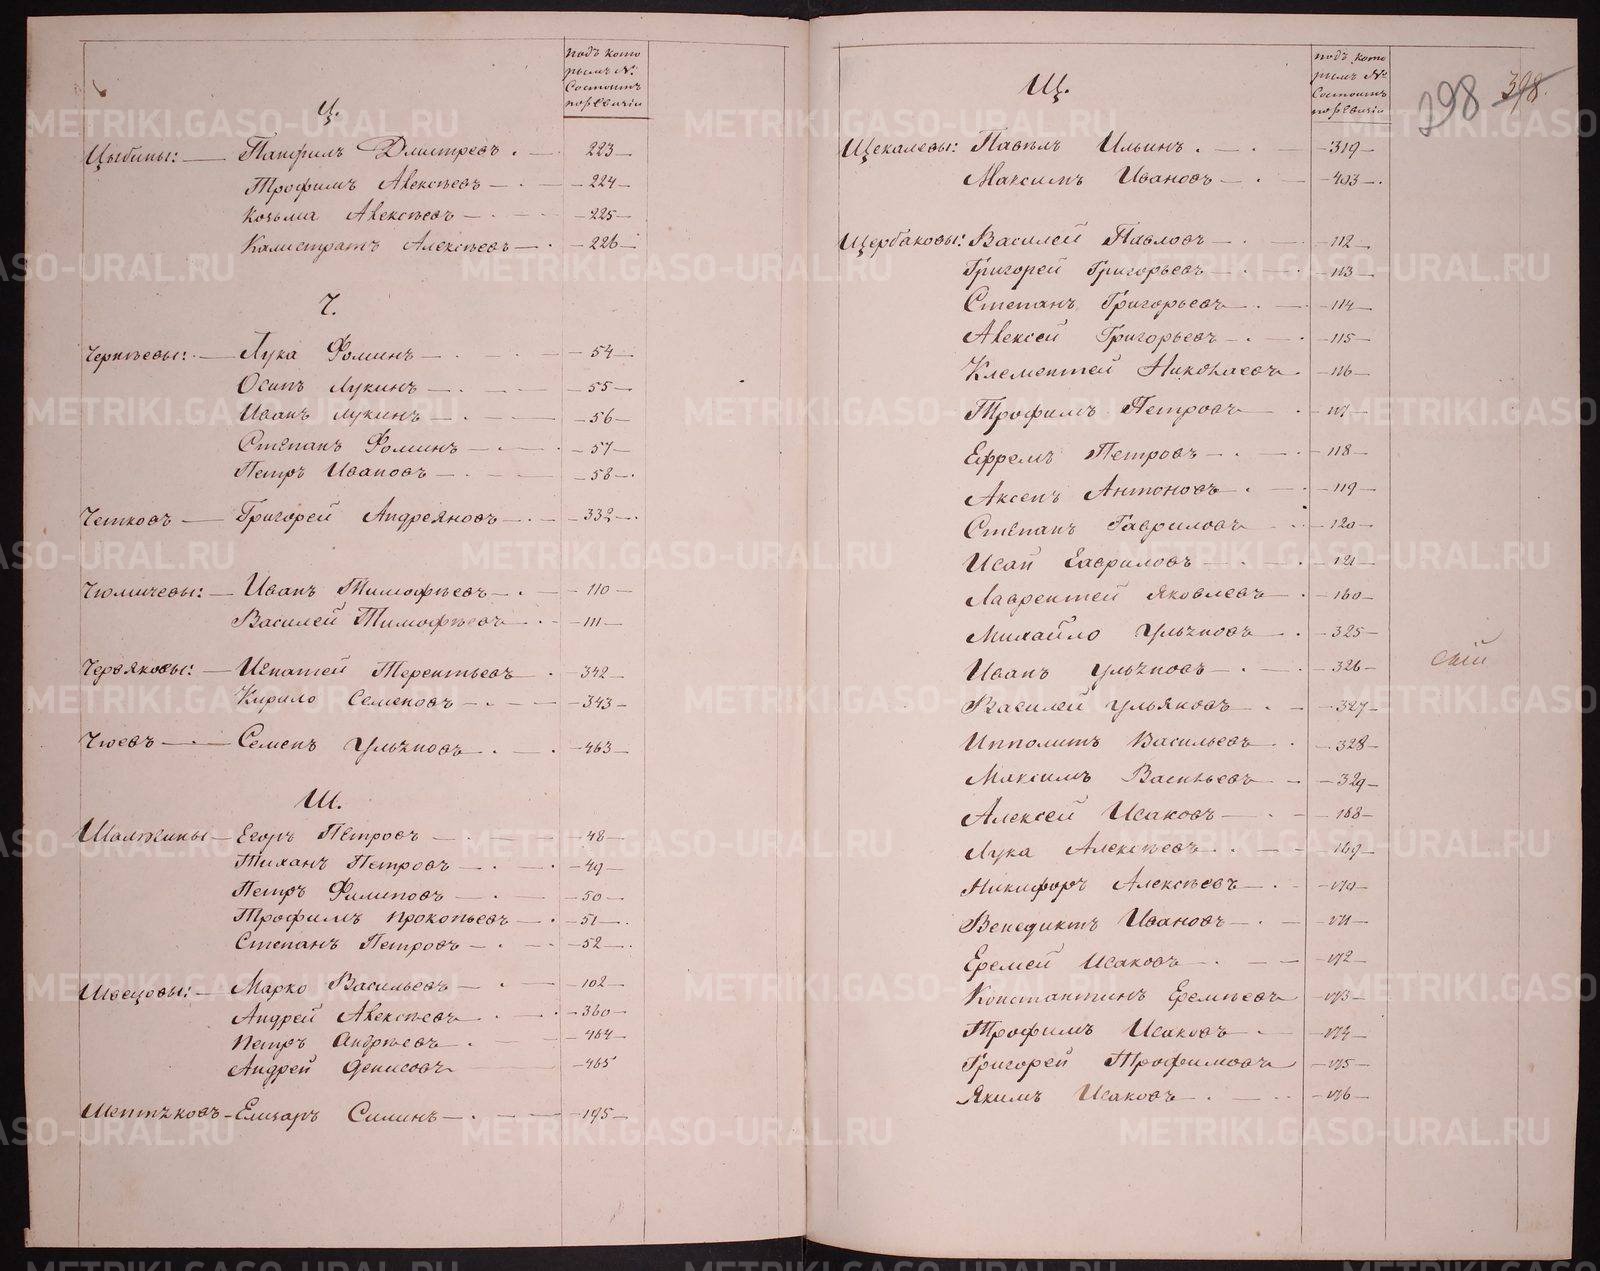 подъ кото
рымъ №
Состоитъ
по ревизіи
Ц.
Цыбины: Панфилъ Дмитревъ 223
Трофимъ Алексѣевъ 224
Козьма Алексѣевъ 225
Калистратъ Алексѣевъ 226
Ч.
Чернѣевы: Лука Фоминъ 54
Осипъ Лукинъ 55
Иванъ Лукинъ 56
Степанъ Фоминъ 57
Петръ Ивановъ 58
Четковъ Григорей Андреяновъ 332
Чюмичевы: Иванъ Тимофѣевъ 110
Василей Тимофѣевъ 111
Червяковы: Игнатей Терентьевъ 342
Кирило Семеновъ 343
Чюевъ Семенъ Ульяновъ 463
Ш.
Шалжины Егоръ Петровъ 48
Тиханъ Петровъ 49
Петръ Филиповъ 50
Трофимъ Прокопьевъ 51
Степанъ Петровъ 52
Швецовы: Марко Васильевъ 102
Андрей Алексѣевъ 360
Петръ Андрѣевъ 464
Андрей Денисовъ 465
Шептяковъ Елизаръ Силинъ 195
подъ кото
рымъ №
Состоитъ
по ревизіи
398 398.
Щ.
Щекалевы: Павелъ Ильинъ 319
Максимъ Ивановъ 403
Щербаковы: Василей Павловъ 112
Григорей Григорьевъ 113
Степанъ Григорьевъ 114
Алексей Григорьевъ 115
Клементей Николаевъ 116
Трофимъ Петровъ 117
Ефремъ Петровъ 118
Аксенъ Антоновъ 119
Степанъ Гавриловъ 120
Исай Гавриловъ 121
Лаврентей Яковлевъ 160
Михайло Ульяновъ 325
Иванъ Ульяновъ 326
Василей Ульяновъ 327
Ипполитъ Васильевъ 328
Максимъ Васильевъ 329
Алексей Исаковъ 168
Лука Алексѣевъ 169
Никифоръ Алексѣевъ 170
Венедиктъ Ивановъ 171
Еремей Исаковъ 172
Константинъ Еремѣевъ 173
Трофимъ Исаковъ 174
Григорей Трофимовъ 175
Якимъ Исаковъ 176
METRIKI.GASO-URAL.RU